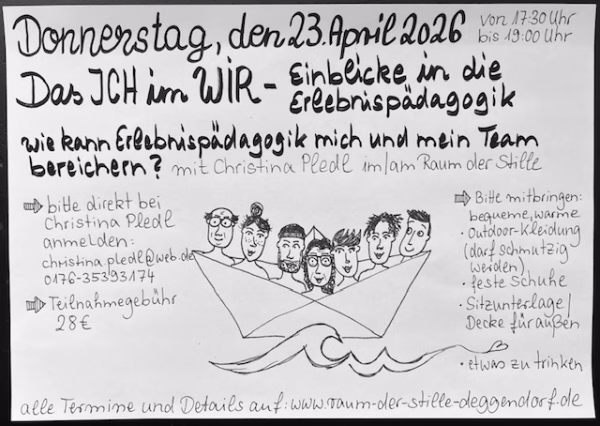 Donnerstag, den 23. April 2026
von 17:30 Uhr
bis 19:00 Uhr
Das ICH im WIR - Einblicke in die
Erlebnispädagogik
wie kann Erlebnispädagogik mich und mein Team
bereichern? mit Christina Pledl im/am Raum der Stille
⇨ bitte direkt bei
Christina Pledl
anmelden:
christina.pledl@web.de
0176-35393174
⇨ Teilnahmegebühr
28€
⇨ Bitte mitbringen:
bequeme, warme
• Outdoor-Kleidung
(darf schmutzig
werden)
• feste Schuhe
• Sitzunterlage/
Decke für außen
• etwas zu trinken
alle Termine und Details auf: www.raum-der-stille-deggendorf.de